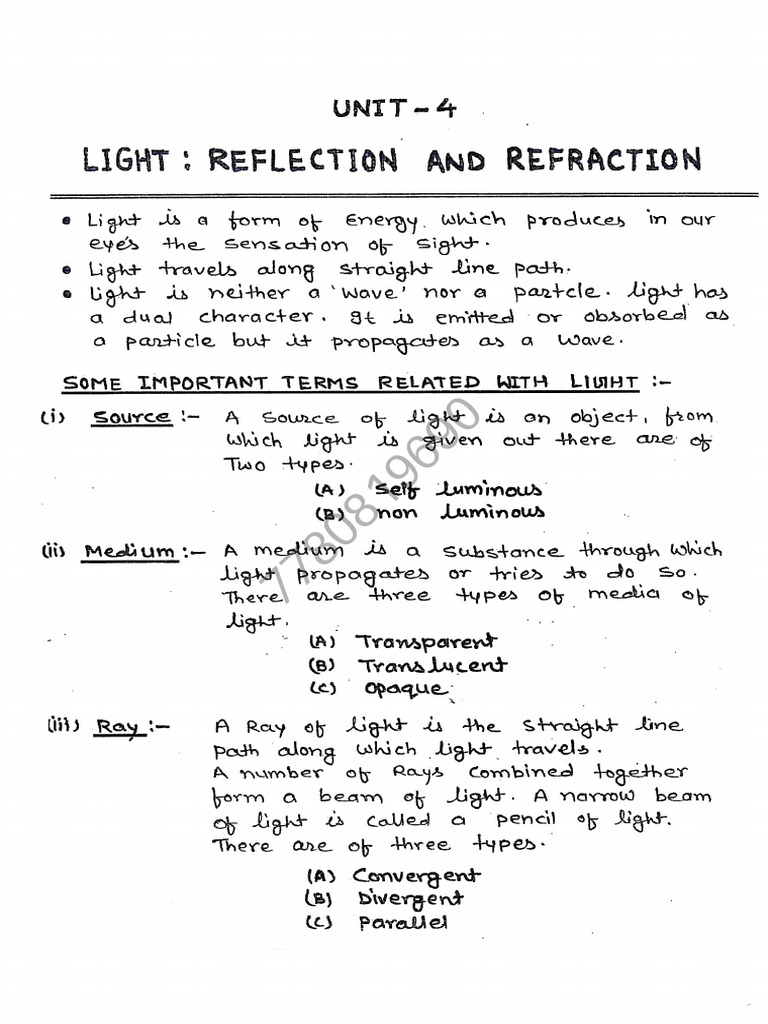 UNIT - 4
LIGHT : REFLECTION AND REFRACTION
• Light is a form of Energy. Which produces in our
eye's the sensation of sight.
• Light travels along straight line path.
• Light is neither a 'wave' nor a partcle. light has
a dual character. It is emitted or absorbed as
a particle but it propagates as a wave.
SOME IMPORTANT TERMS RELATED WITH LIGHT :-
(i) Source :- A source of light is an object, from
which light is given out there are of
Two types.
(A) Self luminous
(B) non luminous
(ii) Medium :- A medium is a substance through which
light propagates or tries to do so.
There are three types of media of
light.
(A) Transparent
(B) Translucent
(C) opaque
(iii) Ray :- A Ray of light is the straight line
path along which light travels.
A number of Rays combined together
form a beam of light. A narrow beam
of light is called a pencil of light.
There are of three types.
(A) Convergent
(B) Divergent
(C) Parallel
7780819690